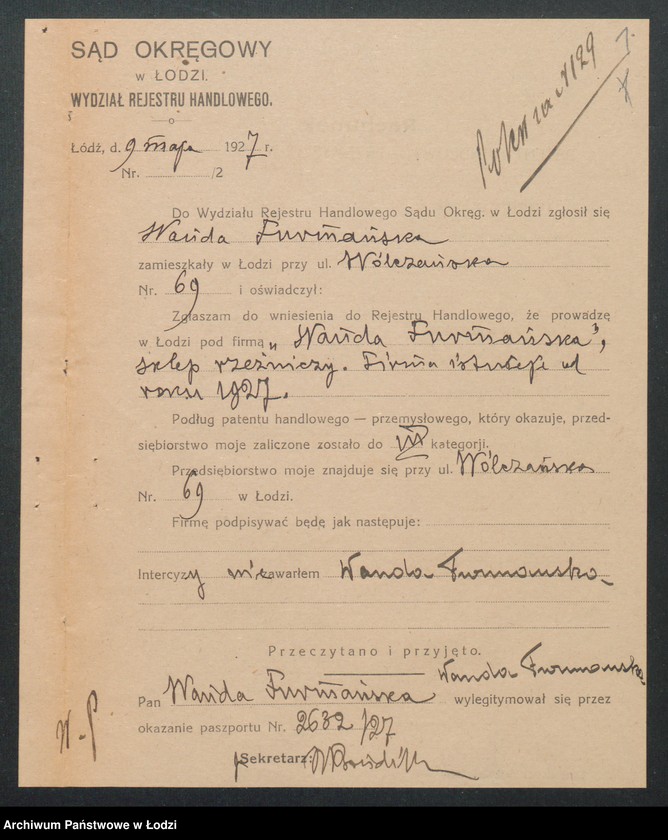 SĄD OKRĘGOWY
w ŁODZI.
WYDZIAŁ REJESTRU HANDLOWEGO.
Łódź, d. 9 maja 1927 r.
Nr. /2
Do Wydziału Rejestru Handlowego Sądu Okręg. w Łodzi zgłosił się
Wanda Furmańska
zamieszkały w Łodzi przy ul. Wólczańska
Nr. 69 i oświadczył:
Zgłaszam do wniesienia do Rejestru Handlowego, że prowadzę
w Łodzi pod firmą „Wanda Furmańska",
sklep rzeźniczy. Firma istnieje od
roku 1927.
Podług patentu handlowego — przemysłowego, który okazuje, przed-
siębiorstwo moje zaliczone zostało do III kategorji.
Przedsiębiorstwo moje znajduje się przy ul. Wólczańska
Nr. 69 w Łodzi.
Firmę podpisywać będę jak następuje:
Intercyzy nie zawarłem Wanda Furmańska
Przeczytano i przyjęto.
Wanda Furmańska
Pan Wanda Furmańska wylegitymował się przez
okazanie paszportu Nr. 2632/27
Sekretarz:
Archiwum Państwowe w Łodzi